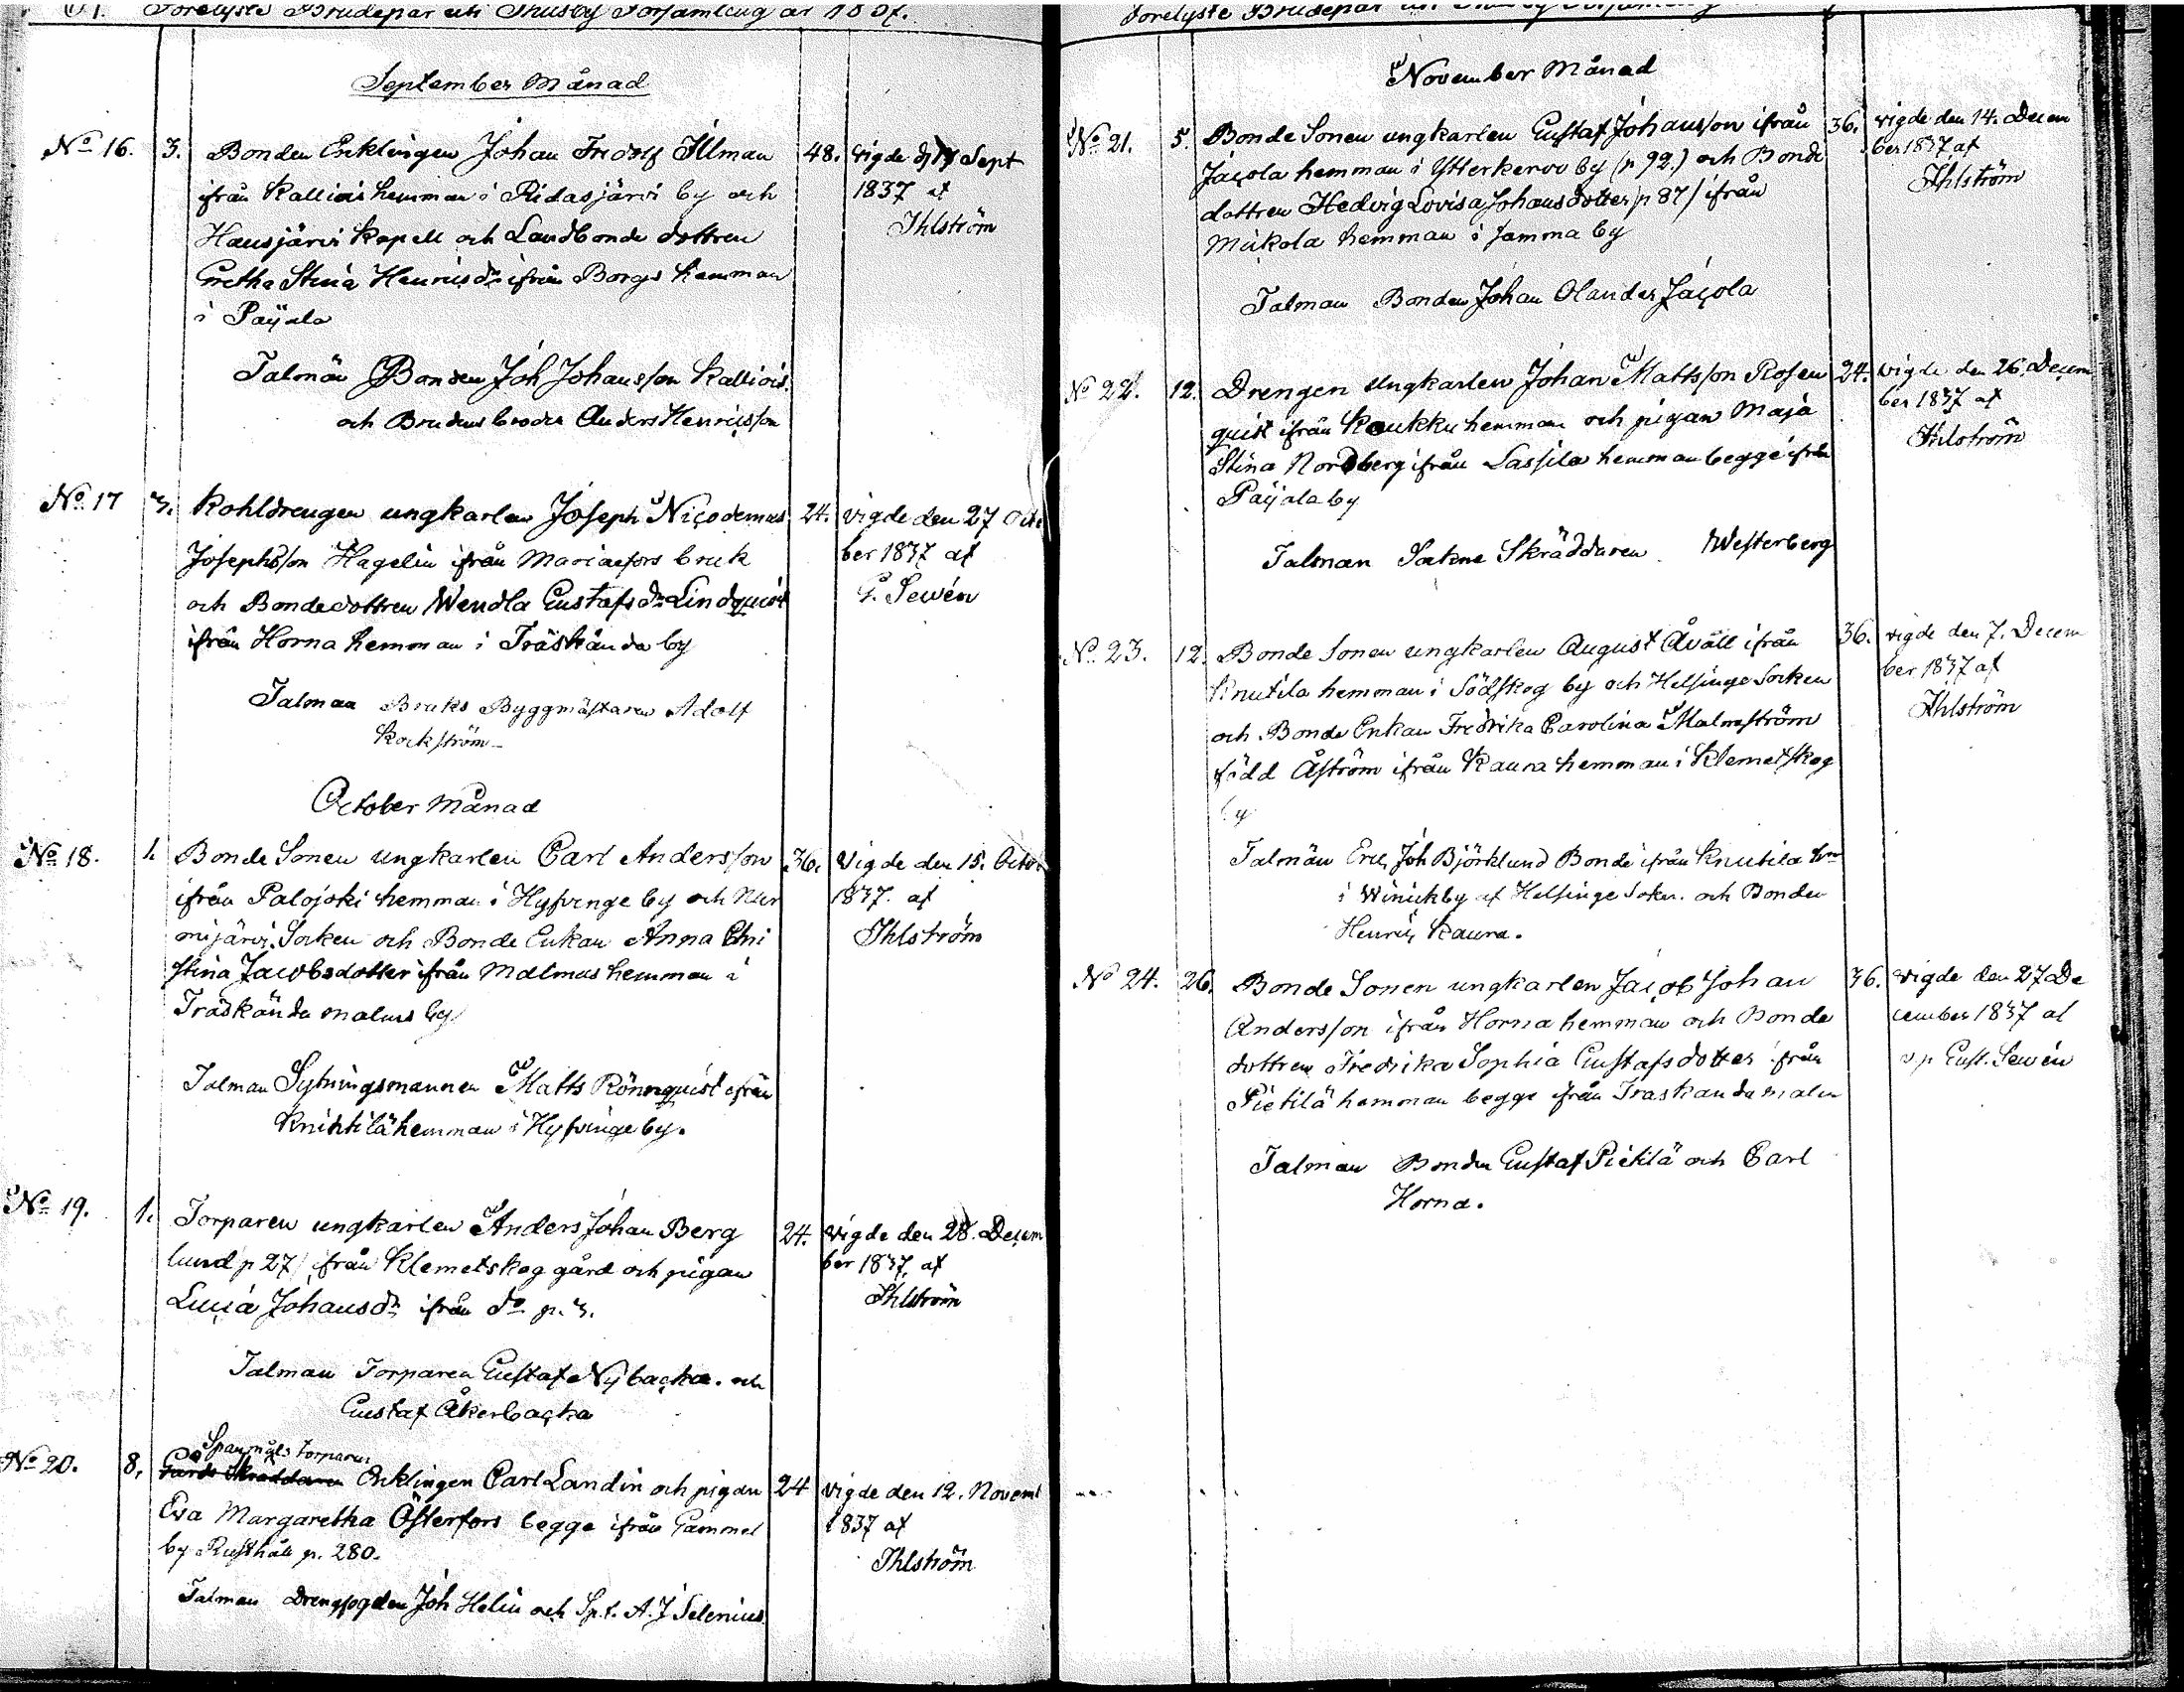 Förelyste Brudepar uti Thusby Församling år 1837.
September Månad
No 16. 3. Bonden Enklingen Johan Fridolf Illman 48. vigde d. Sept
ifrån Kalliois hemman i Ridasjärvi by och 1837 af
Hausjärvi Kapell och Landbonde dottren Ihlström
Gretha Stina Henricsdr ifrån Borgs hemman
i Paijala
Talmän Bonden Joh Johansson Kalliois
och Brudens broder Anders Henricsson
No 17 3. Kohldrengen ungkarlen Joseph Nicodemus 24. vigde den 27 Octo
Josephsson Hagelin ifrån Mariaefors bruk ber 1837 af
och Bondedottren Wendla Gustafs dr Lindquist G. Sewén
ifrån Horna hemman i Träskända by
Talman Bruks Byggmästaren Adolf
Kockström
October Månad
No 18. 1. Bonde Sonen ungkarlen Carl Andersson 36. Vigde den 15. Octo
ifrån Palojoki hemman i Hyfvinge by och Nur 1837. af
mijärvi Socken och Bonde Enkan Anna Chri Ihlström
stina Jacobsdotter ifrån Malmus hemman i
Träskända malms by
Talman Sytningsmannen Matts Rönnquist ifrån
Knihtilä hemman i Hyfvinge by.
No 19. 1. Torparen ungkarlen Anders Johan Berg 24. vigde den 28. Decem
lund p 27/ ifrån Klemetskog gård och pigan ber 1837. af
Lucia Johansdr ifrån do p. 3. Ihlström
Talman Torparen Gustaf Nybacka. och
Gustaf Åkerbacka
Spanmåls torparen
No 20. 8. Gårds Skräddaren Enklingen Carl Landin och pigan 24 vigde den 12. Novem
Eva Margaretha Österfors begge ifrån Gammel 1837 af
by Rusthåll p. 280. Ihlström
Talman Drengfogden Joh Helin och Spt. A. J Selenius
Förelyste Brudepar
November Månad
No 21. 5. Bonde Sonen ungkarlen Gustaf Johansson ifrån 36. vigde den 14. Decem
Jacola hemman i Ytterkervo by (p 92.) och Bonde ber 1837 af
dottren Hedvig Lovisa Johansdotter /p 87/ ifrån Ihlström
Mickola hemman i samma by
Talman Bonden Johan Olander Jacola
No 22. 12. Drengen Ungkarlen Johan Mattsson Rosen 24. vigde den 26. Decem
quist ifrån Koukku hemman och pigan Maja ber 1837 af
Stina Nordberg ifrån Lassila hemman begge ifrån Ihlström
Paijala by
Talman Sokne Skräddaren Westerberg
No 23. 12. Bonde Sonen ungkarlen August Åvall ifrån 36. vigde den 7. Decem
Knutila hemman i Södskog by och Helsinge Socken ber 1837 af
och Bonde Enkan Fredrika Carolina Malmström Ihlström
född Åström ifrån Kaura hemman i Klemetskog
by
Talmän Eric Joh Björklund Bonde ifrån Knutila hn
i Winickby af Helsinge Soken. och Bonden
Henric Kaura.
No 24. 26. Bonde Sonen ungkarlen Jacob Johan 36. vigde den 27 De
Andersson ifrån Horna hemman och Bonde cember 1837 af
dottren Fredrika Sophia Gustafsdotter ifrån v. p Gust. Sewén
Pietilä hemman begge ifrån Träskända malm
Talman Bonden Gustaf Pietilä och Carl
Horna.